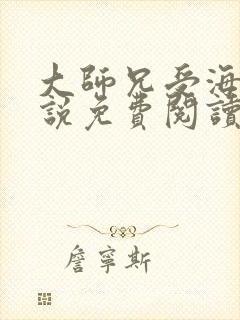 大師兄受海
說免費閱讀
詹寧斯